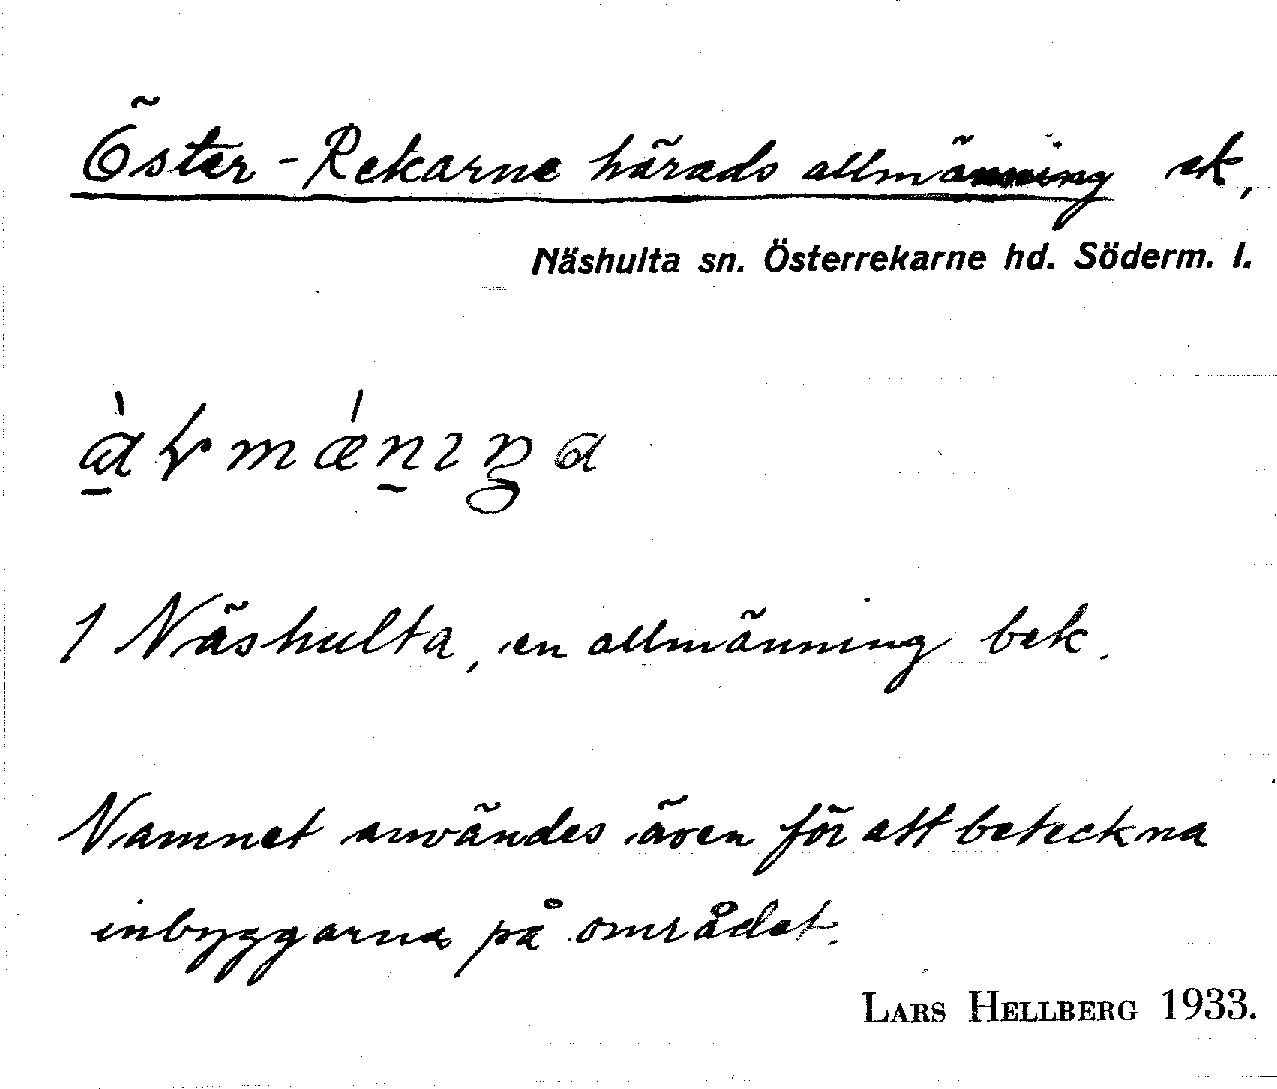 Öster-Rekarne härads allmänning ek,
Näshulta sn. Österrekarne hd. Söderm. l.
1 Näshulta, en allmänning bek.
Namnet användes även för att beteckna
inbyggarna på området.
LARS HELLBERG 1933.